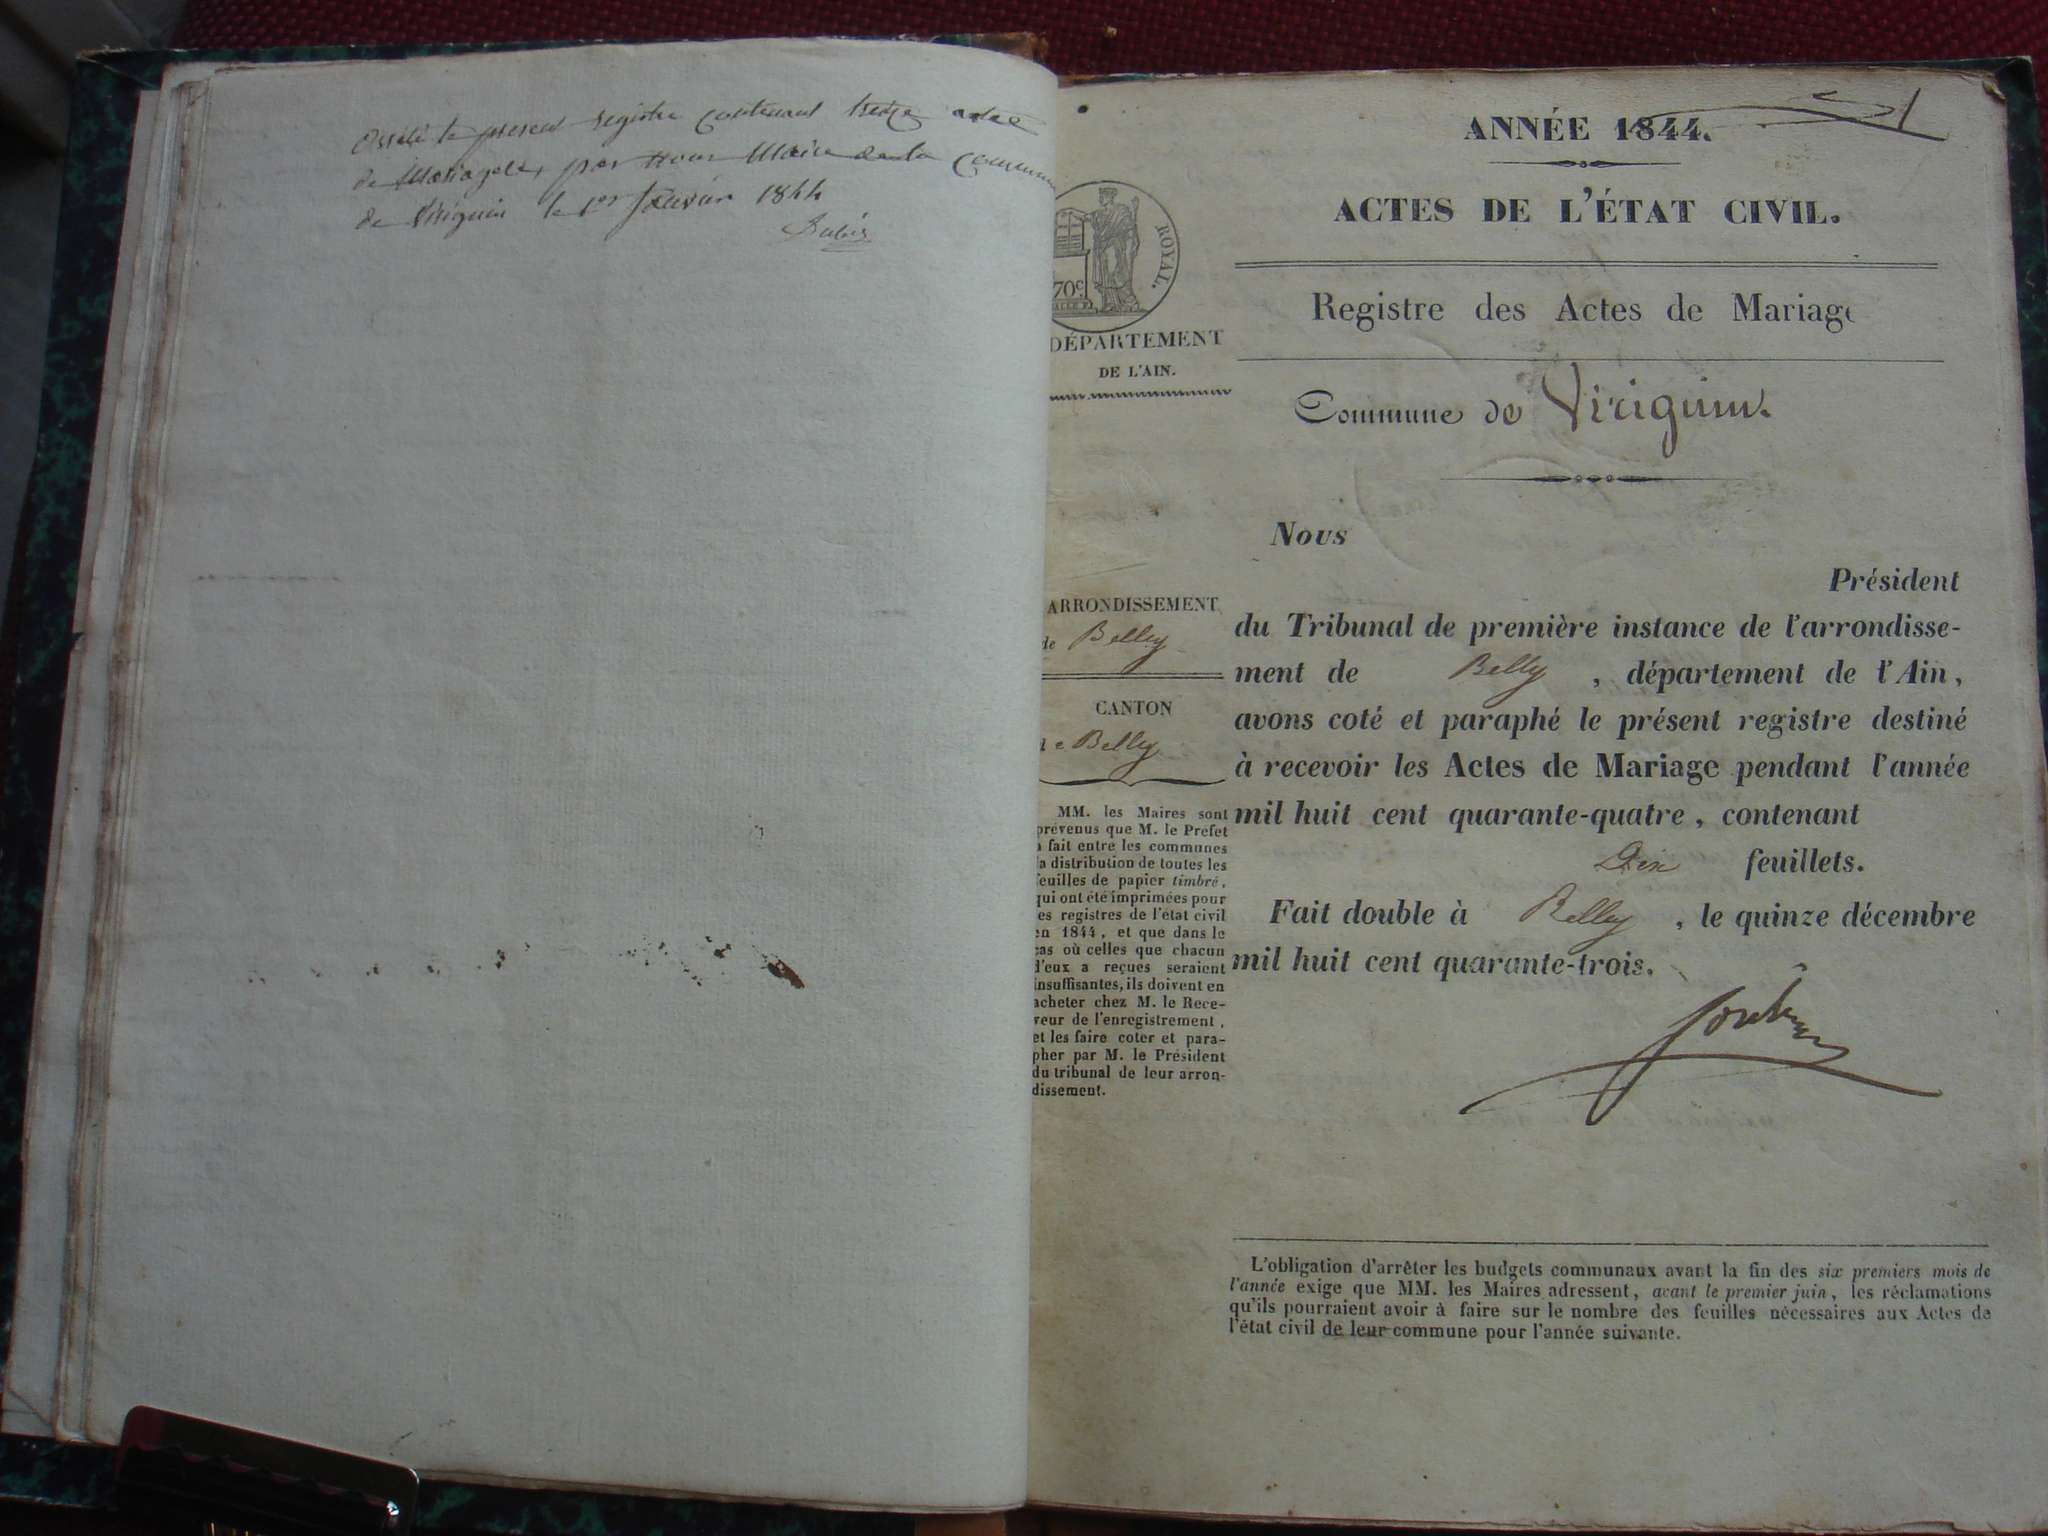 Arrêté le present registre contenant treize actes
de Mariages, par nous Maire de la Commune
de Viriguin le 1er Janvier 1844
1
ANNÉE 1844.
ACTES DE L'ÉTAT CIVIL.
Registre des Actes de Mariage
Commune de Viriguin.
ROYAL.
70c.
DÉPARTEMENT
DE L'AIN.
ARRONDISSEMENT
de Belley
CANTON
de Belley
MM. les Maires sont
prévenus que M. le Prefet
a fait entre les communes
la distribution de toutes les
feuilles de papier timbré,
qui ont été imprimées pour
les registres de l'état civil
en 1844, et que dans le
cas où celles que chacun
d'eux a reçues seraient
insuffisantes, ils doivent en
acheter chez M. le Rece-
veur de l'enregistrement,
et les faire coter et para-
pher par M. le Président
du tribunal de leur arron-
dissement.
Nous
Président
du Tribunal de première instance de l'arrondisse-
ment de Belley, département de l'Ain,
avons coté et paraphé le présent registre destiné
à recevoir les Actes de Mariage pendant l'année
mil huit cent quarante-quatre, contenant
Dix feuillets.
Fait double à Belley, le quinze décembre
mil huit cent quarante-trois.
L'obligation d'arrêter les budgets communaux avant la fin des six premiers mois de
l'année exige que MM. les Maires adressent, avant le premier juin, les réclamations
qu'ils pourraient avoir à faire sur le nombre des feuilles nécessaires aux Actes de
l'état civil de leur commune pour l'année suivante.